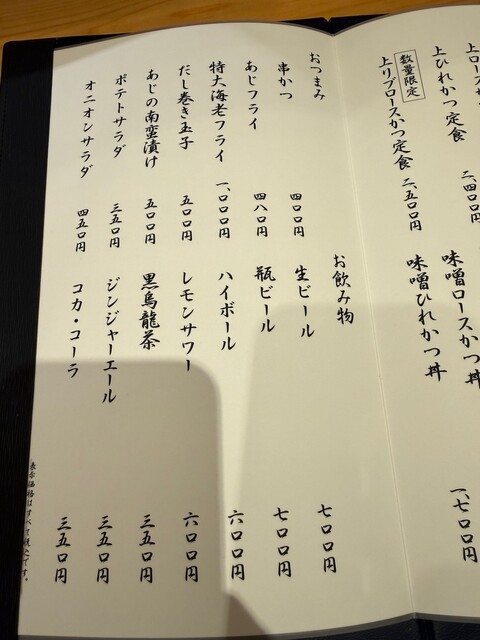 上ロース
上ひれかつ定食 二、四〇〇円
数量限定
上リブロースかつ定食 二、五〇〇円
味噌ロースかつ丼
味噌ひれかつ丼 一、七〇〇円
おつまみ
串かつ 四〇〇円
あじフライ 四八〇円
特大海老フライ 一、〇〇〇円
だし巻き玉子 五〇〇円
あじの南蛮漬け 五〇〇円
ポテトサラダ 三五〇円
オニオンサラダ 四五〇円
お飲み物
生ビール 七〇〇円
瓶ビール 七〇〇円
ハイボール 六〇〇円
レモンサワー 六〇〇円
黒烏龍茶 三五〇円
ジンジャーエール 三五〇円
コカ・コーラ 三五〇円
表示価格はすべて税込です。